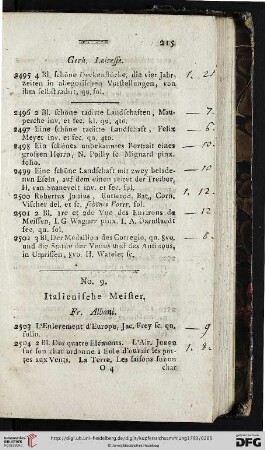 215
Gerh. Lairesse.
2495 4 Bl. schöne Deckenstücke, die vier Jahr-
zeiten in allegorischen Vorstellungen, von
ihm selbst radirt, qu. fol.
1. 21
2496 2 Bl. schöne radirte Landschaften, Mau-
perche inv. et fec. kl. qu. 4to.
7.
2497 Eine schöne radirte Landschaft, Felix
Meyer inv. et fec. qu. 4to.
6.
2498 Ein schönes unbekanntes Portrait eines
grossen Herrn, N. Poilly sc. Mignard pinx.
folio.
10.
2499 Eine schöne Landschaft mit zwey belade-
nen Eseln, auf dem einen reitet der Treiber,
H. van Swanevelt inv. et fec. fol.
1. 12
2500 Robertus Junius, Rotterod. Bat. Corn.
Visscher del. et sc. schönes Portr. fol.
12.
2501 2 Bl. 1re et 2de Vue des Environs de
Meissen, I. G. Wagner pinx. I. A. Darnstaedt
sec. qu. fol.
2502 3 Bl. Der Medaillon des Corregio, qu. 8vo.
und die Statüe der Venus und des Antinous,
in Umrissen, gr. 8vo. H. Watelet sc.
8.
No. 9.
Italienische Meister,
Fr. Albani.
2503 L'Enlevement d'Europa, Jac. Frey sc. qu.
folio.
9
2504 2 Bl. Des quatre Elémens. L'Air. Junon
sur son char ordonne à Eole d'ouvrir les por-
tes aux Vents. La Terre. Les saisons sur un
1. 8.
O 4
char
http://digi.ub.uni-heidelberg.de/diglit/
© Universitätsbibliothek Heidelberg
gefördert durch die
DFG